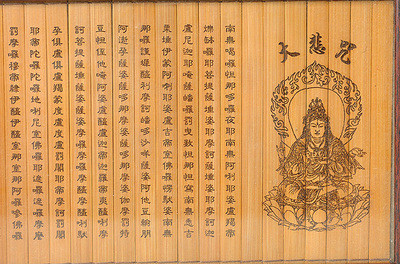 大悲咒
南無喝囉怛那哆囉夜耶南無阿唎耶婆盧羯帝
爍缽囉耶菩提薩埵婆耶摩訶薩埵婆耶摩訶迦
盧尼迦耶唵薩皤囉罰曳數怛那怛寫南無悉吉
栗埵伊蒙阿唎耶婆盧吉帝室佛囉愣馱婆南無
那囉謹墀醯利摩訶皤哆沙咩薩婆阿他豆輸朋
阿逝孕薩婆薩哆那摩婆薩哆那摩婆伽摩罰特
豆怛姪他唵阿婆盧醯盧迦帝迦羅帝夷醯唎摩
訶菩提薩埵薩婆薩婆摩囉摩囉摩醯摩醯唎馱
孕俱盧俱盧羯蒙度盧度盧罰闍耶帝摩訶罰闍
耶帝陀囉陀囉地唎尼室佛囉耶遮囉遮囉摩麼
罰摩囉穆帝隸伊醯伊醯室那室那阿囉參佛囉